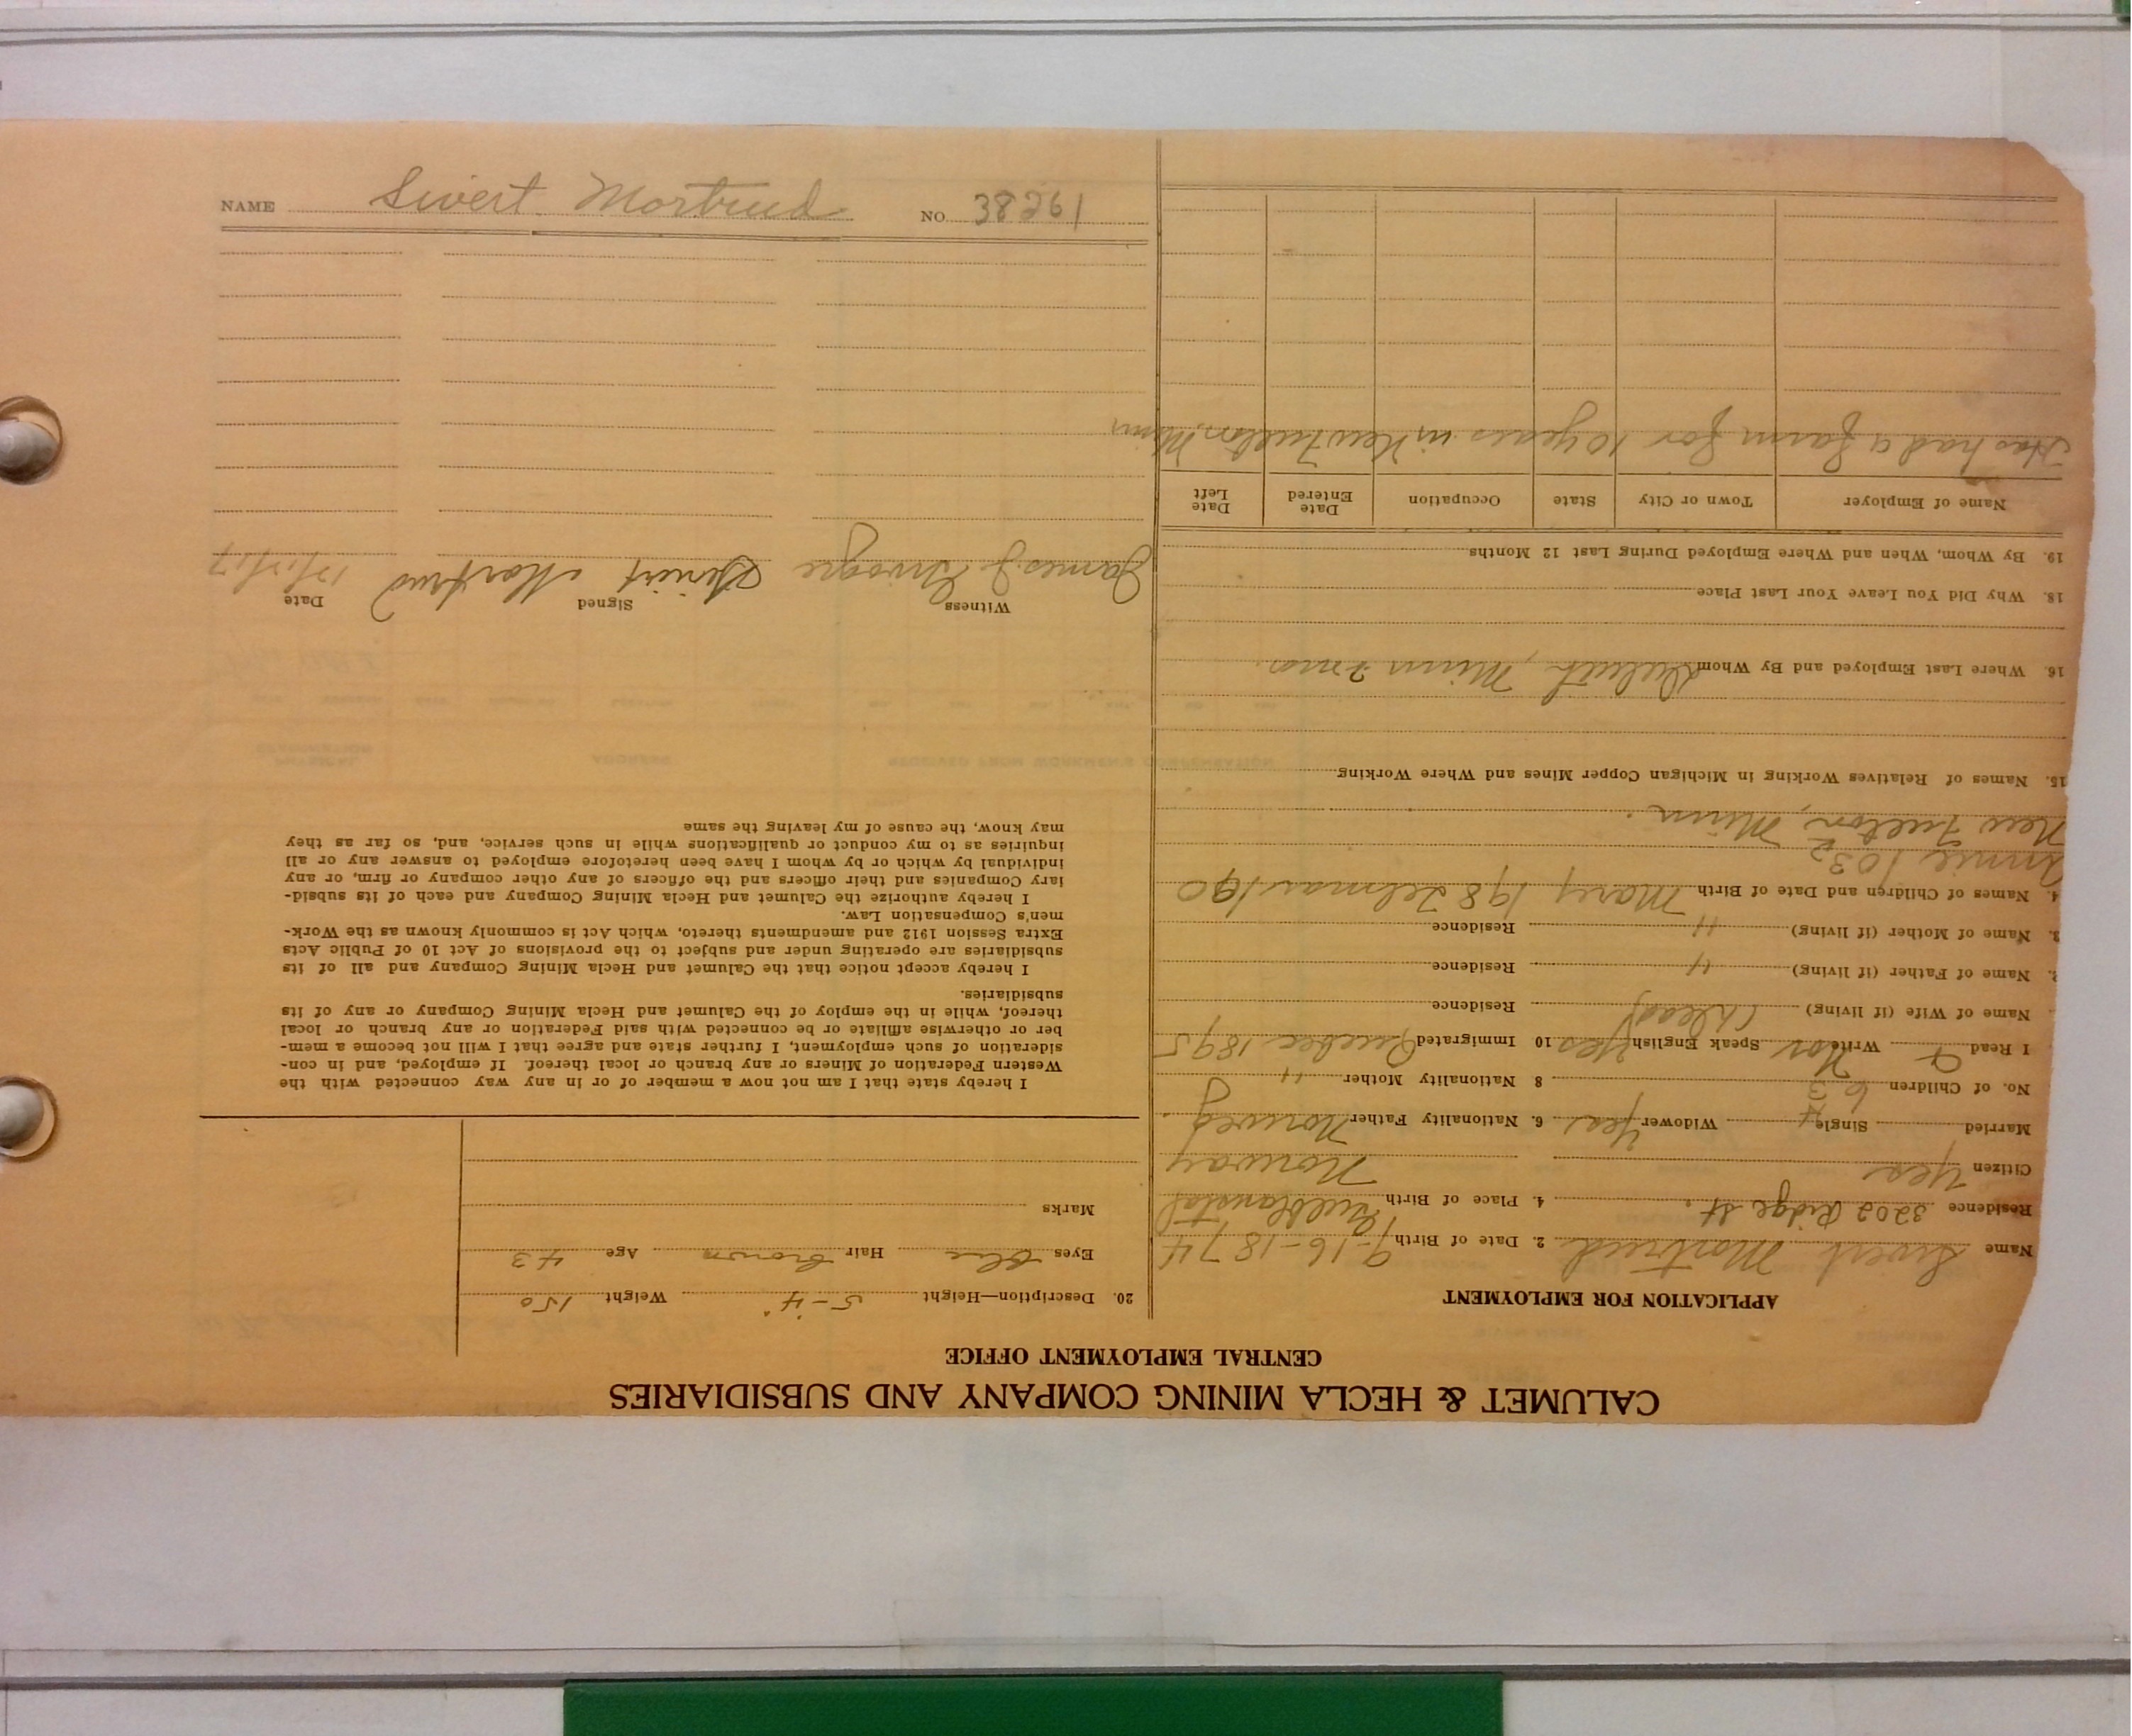 CALUMET & HECLA MINING COMPANY AND SUBSIDIARIES
CENTRAL EMPLOYMENT OFFICE
APPLICATION FOR EMPLOYMENT
Name Sivert Mortrud 2. Date of Birth 9-16-1874
Residence 3202 Ridge St. 4. Place of Birth
Citizen Yes Norway
Married Single Widower Yes 6. Nationality Father Norweg
No. of Children 3 8 Nationality Mother "
I Read Write Nor Speak English Yes 10 Immigrated Quebec 1895
Name of Wife (if living) (Dead) Residence
2. Name of Father (if living) " Residence
3. Name of Mother (if living) " Residence
4. Names of Children and Date of Birth Mary 198
Annie 103
New Fulton, Minn.
15. Names of Relatives Working in Michigan Copper Mines and Where Working
16. Where Last Employed and By Whom Duluth, Minn 2 mos.
18. Why Did You Leave Your Last Place
19. By Whom, When and Where Employed During Last 12 Months
Name of Employer Town or City State Occupation Date Entered Date Left
Has had a farm for 10 years in New Fulton, Minn
20. Description—Height 5-4" Weight 150
Eyes Blue Hair Brown Age 43
Marks
I hereby state that I am not now a member of or in any way connected with the
Western Federation of Miners or any branch or local thereof. If employed, and in con-
sideration of such employment, I further state and agree that I will not become a mem-
ber or otherwise affiliate or be connected with said Federation or any branch or local
thereof, while in the employ of the Calumet and Hecla Mining Company or any of its
subsidiaries.
I hereby accept notice that the Calumet and Hecla Mining Company and all of its
subsidiaries are operating under and subject to the provisions of Act 10 of Public Acts
Extra Session 1912 and amendments thereto, which Act is commonly known as the Work-
men's Compensation Law.
I hereby authorize the Calumet and Hecla Mining Company and each of its subsid-
iary Companies and their officers and the officers of any other company or firm, or any
individual by which or by whom I have been heretofore employed to answer any or all
inquiries as to my conduct or qualifications while in such service, and, so far as they
may know, the cause of my leaving the same
Witness Signed Date
James J. Sivert Mortrud
NAME Sivert Mortrud NO. 38261